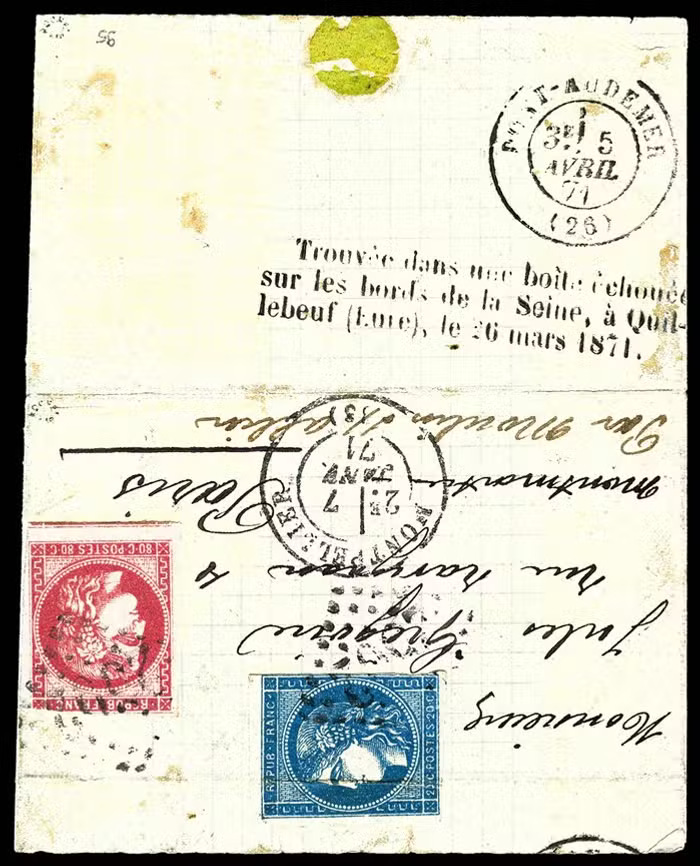 95
PONT-AUDEMER
3E 5
AVRIL
71
(26)
Trouvée dans une boîte échouée
sur les bords de la Seine, à Quil-
lebeuf (Eure), le 26 mars 1871.
Monsieur
Jules
rue
montmartre Paris
Par Moulin
MONTPELLIER
2E 7
JANV.
71
REPUB. FRANC.
20 C POSTES 20 C
REPUB. FRANC.
80 C POSTES 80 C